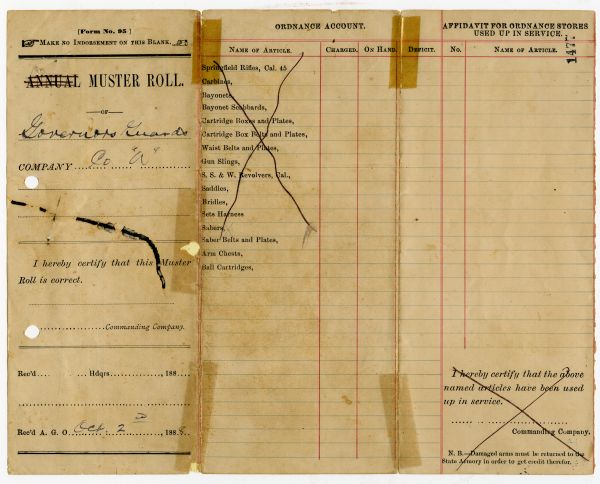 [Form No. 95]
MAKE NO INDORSEMENT ON THIS BLANK.
ANNUAL MUSTER ROLL.
—OF—
Governors Guards
COMPANY Co "A"
I hereby certify that this Muster
Roll is correct.
Commanding Company.
Rec'd Hdqrs., 188
Rec'd A. G. O. Oct. 2 188
ORDNANCE ACCOUNT.
NAME OF ARTICLE. CHARGED. ON HAND. DEFICIT.
Springfield Rifles, Cal. 45
Carbines,
Bayonets,
Bayonet Scabbards,
Cartridge Boxes and Plates,
Cartridge Box Belts and Plates,
Waist Belts and Plates,
Gun Slings,
S. S. & W. Revolvers, Cal.,
Saddles,
Bridles,
Sets Harness
Sabers,
Saber Belts and Plates,
Arm Chests,
Ball Cartridges,
AFFIDAVIT FOR ORDNANCE STORES
USED UP IN SERVICE.
147
No. NAME OF ARTICLE.
I hereby certify that the above
named articles have been used
up in service.
Commanding Company.
N. B.—Damaged arms must be returned to the
State Armory in order to get credit therefor.